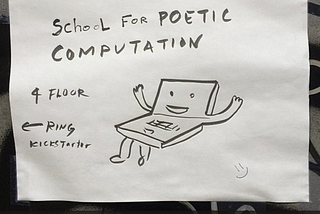 SCHooL FOR POETIC
COMPUTATION
4 FLOOR
← RING
KICKSTARTER